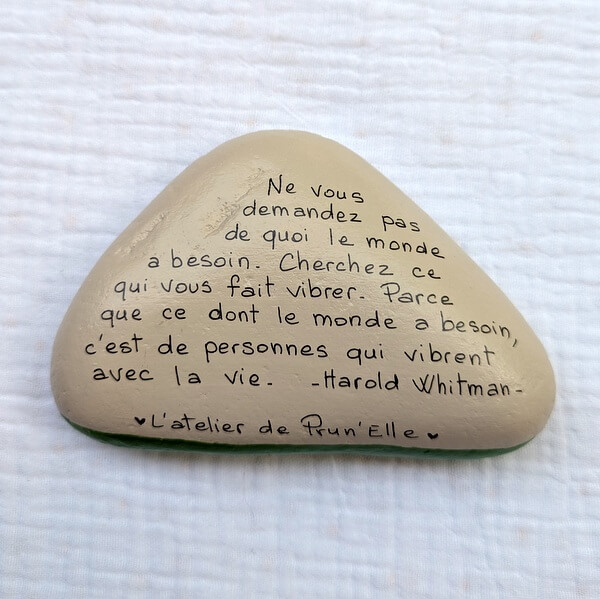 Ne vous
demandez pas
de quoi le monde
a besoin. Cherchez ce
qui vous fait vibrer. Parce
que ce dont le monde a besoin,
c'est de personnes qui vibrent
avec la vie. -Harold Whitman-
♥L'atelier de Prun'Elle♥